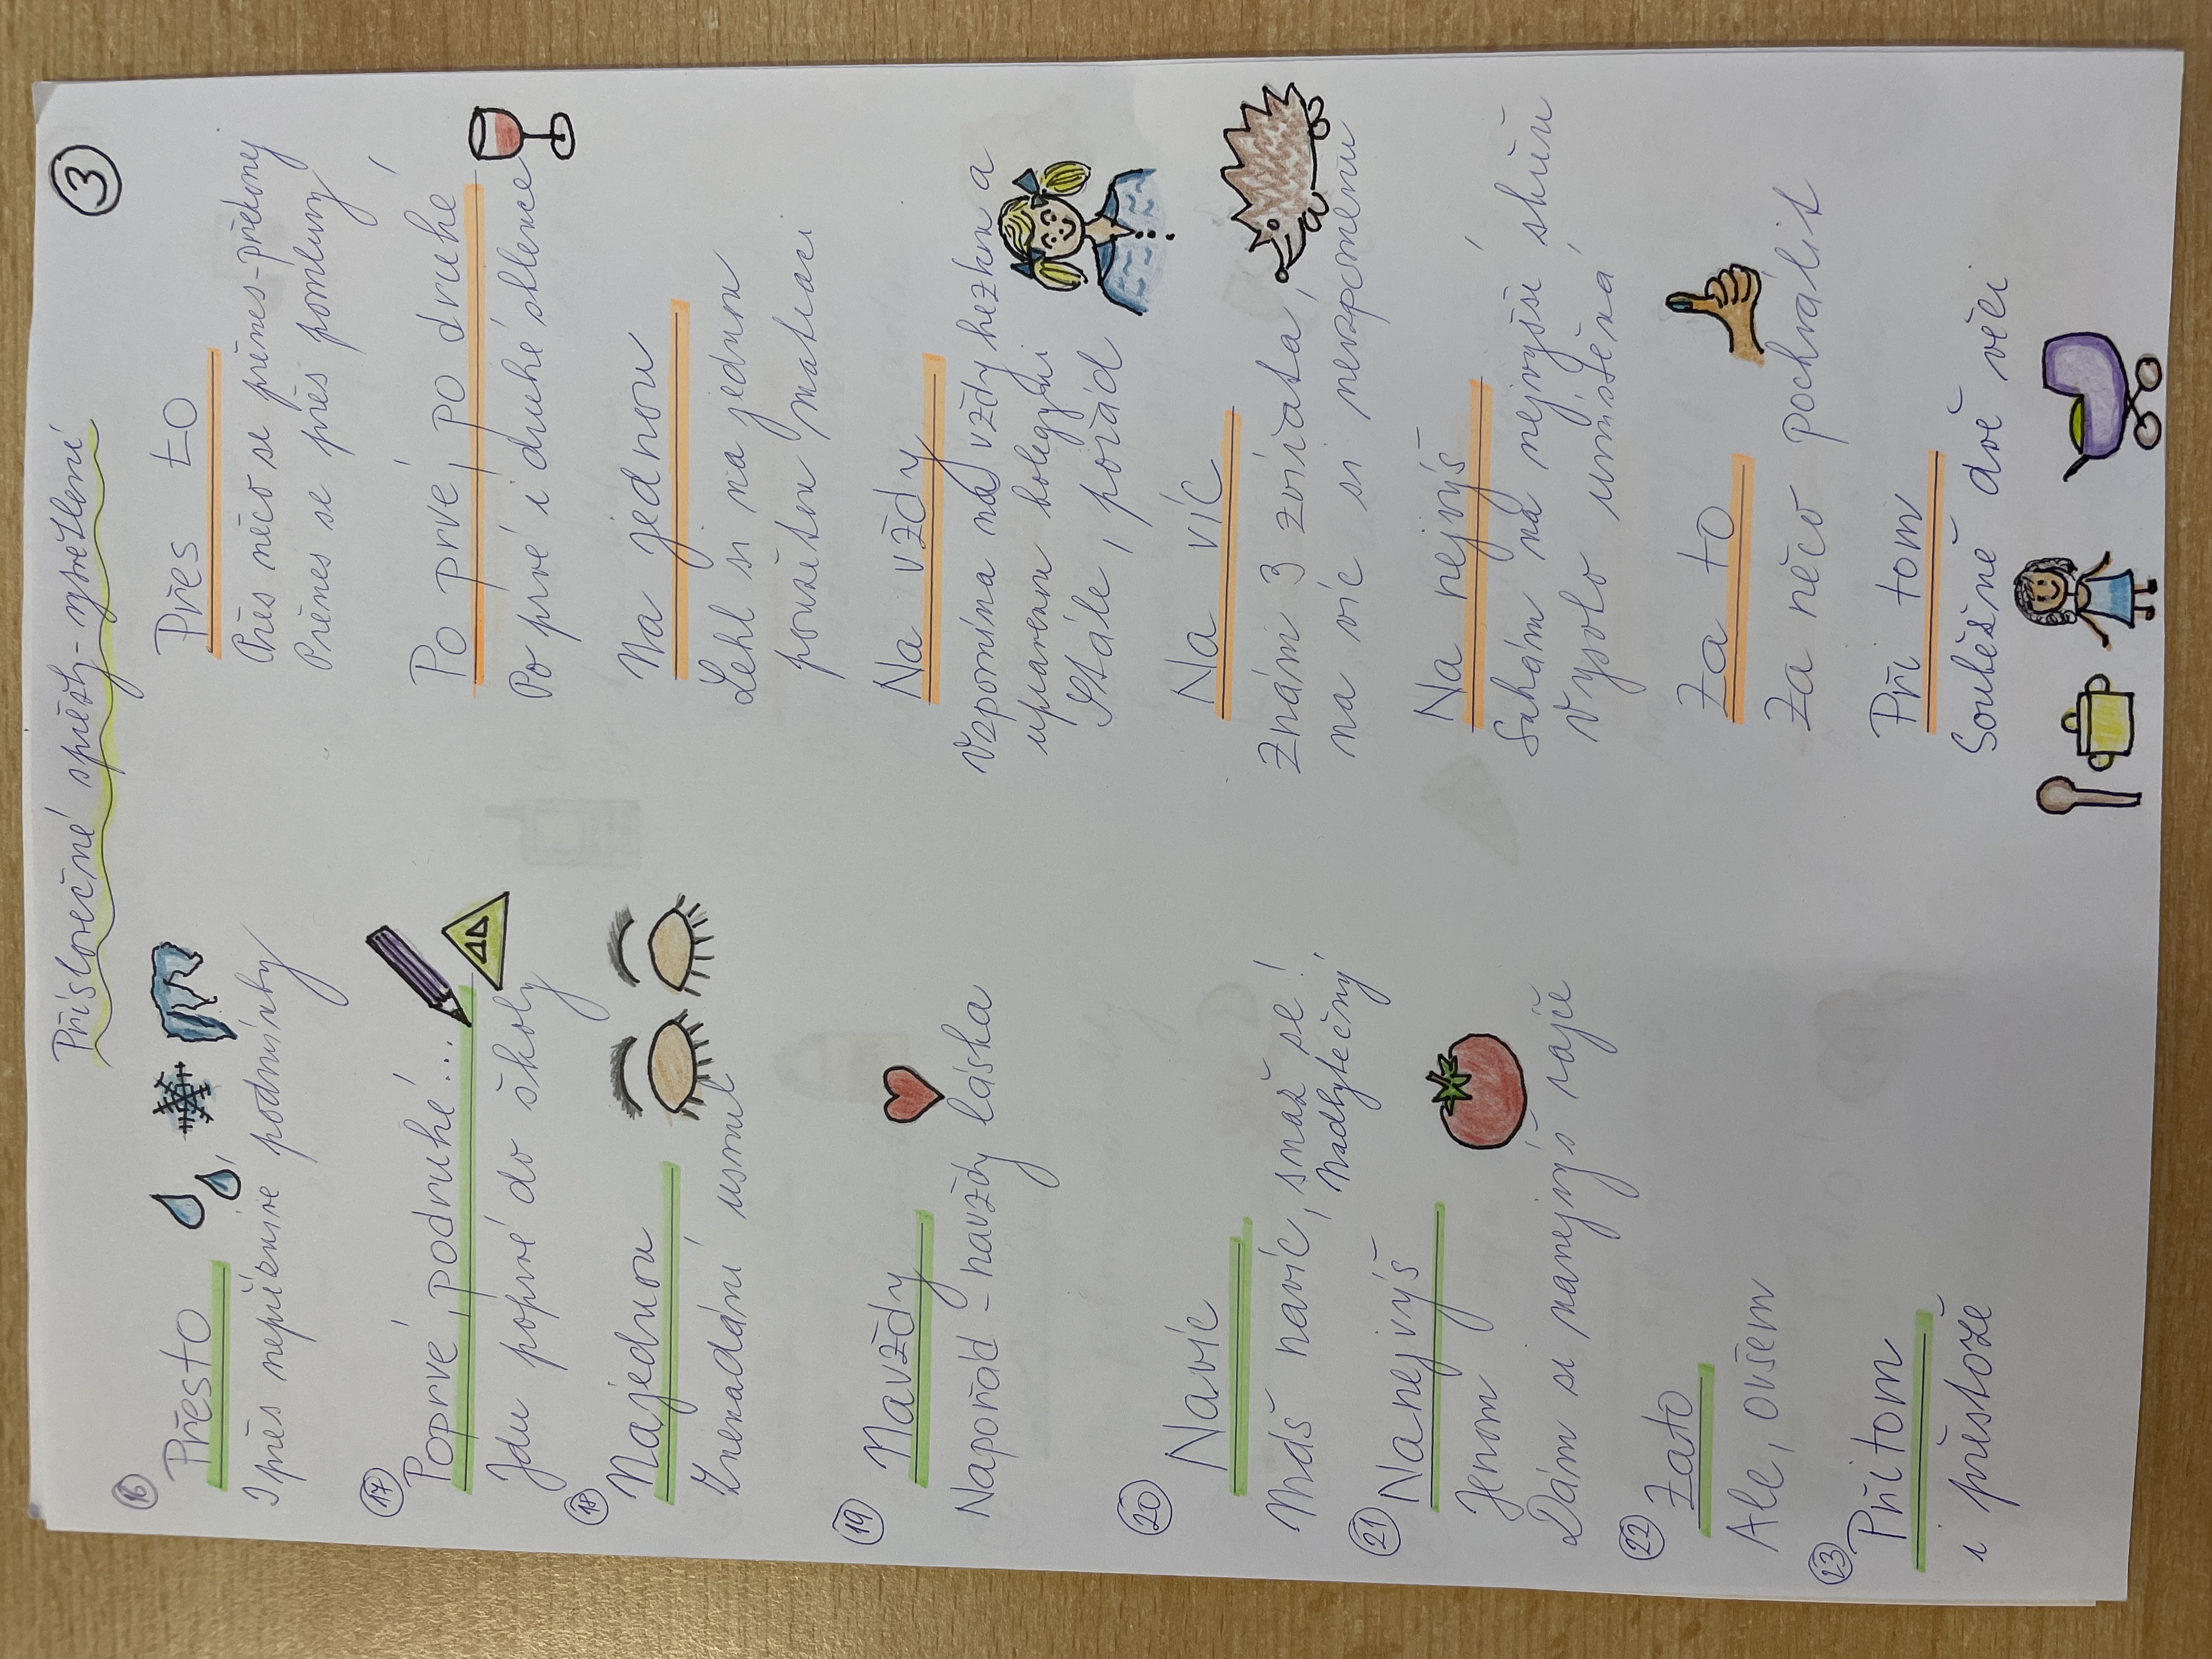 3
Příslovečné spřežky - vysvětlení
16
Přesto
I přes nepříznivé
podmínky
Přes to
Přes něco se přenes - překonej
Přenes se přes pomluvy
17
Poprvé, podruhé...
Jdu poprvé do školy
Po prvé, po druhé
Po prvé i druhé sklence
18
Najednou
Znenadání usnul
Na jednou
Lehl si na jednou
použitou matraci
19
Navždy
Napořád - navždy láska
Na vždy
Vzpomíná na vždy hezkou a
upravenou kolegyni
Stále, pořád
20
Navíc
Máš navíc, smaž se!
Nadbytečný
Na víc
Znám 3 zvířata,
na víc si nevzpomenu
21
Nanejvýš
Jenom
Dám si nanejvýš rajče
Na nejvýš
Sahám na nejvyšší skříň
Vysoko umístěná
22
Zato
Ale, ovšem
Za to
Za něco pochválit
23
Přitom
i přestože
Při tom
Souběžně dvě věci